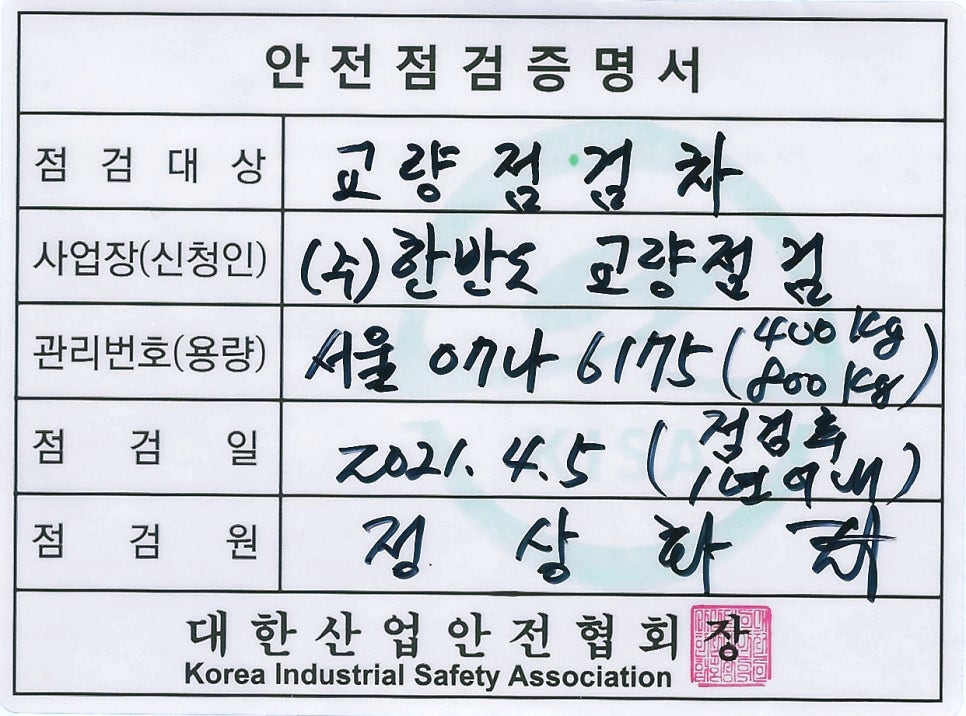 안전점검증명서
점검대상 교량점검차
사업장(신청인) (주)한반도 교량점검
관리번호(용량) 서울 07나 6175 (400kg 800kg)
점검일 2021. 4. 5 (점검후 1년이내)
점검원 정상화
대한산업안전협회장
Korea Industrial Safety Association